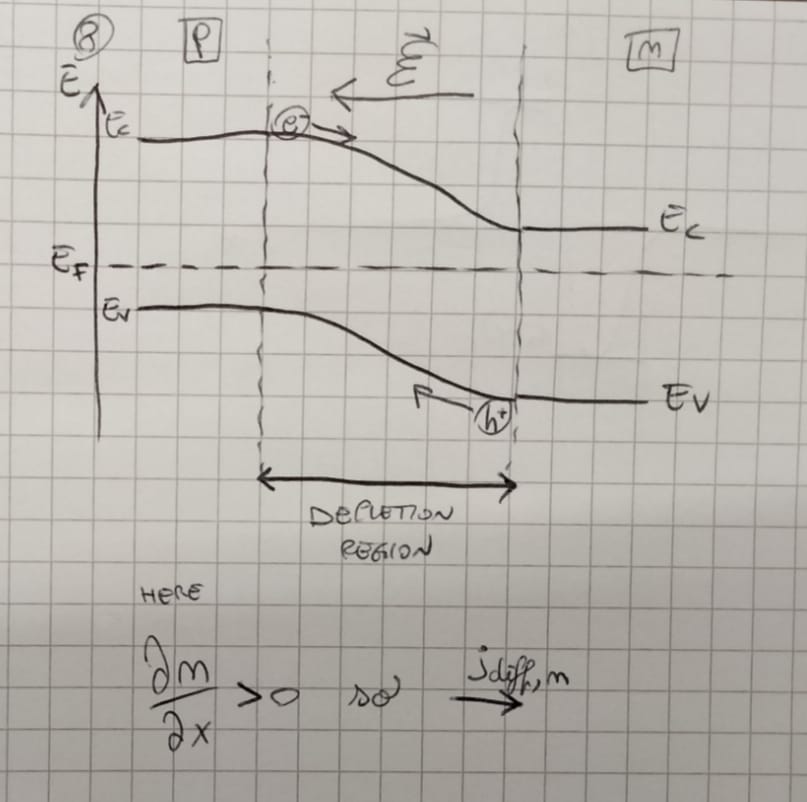 ③ P ξ⃗ n
E
Ec e⁻
Ec
EF
Ev
h⁺ Ev
DEPLETION
REGION
HERE
∂n/∂x > 0 so jdiff,n